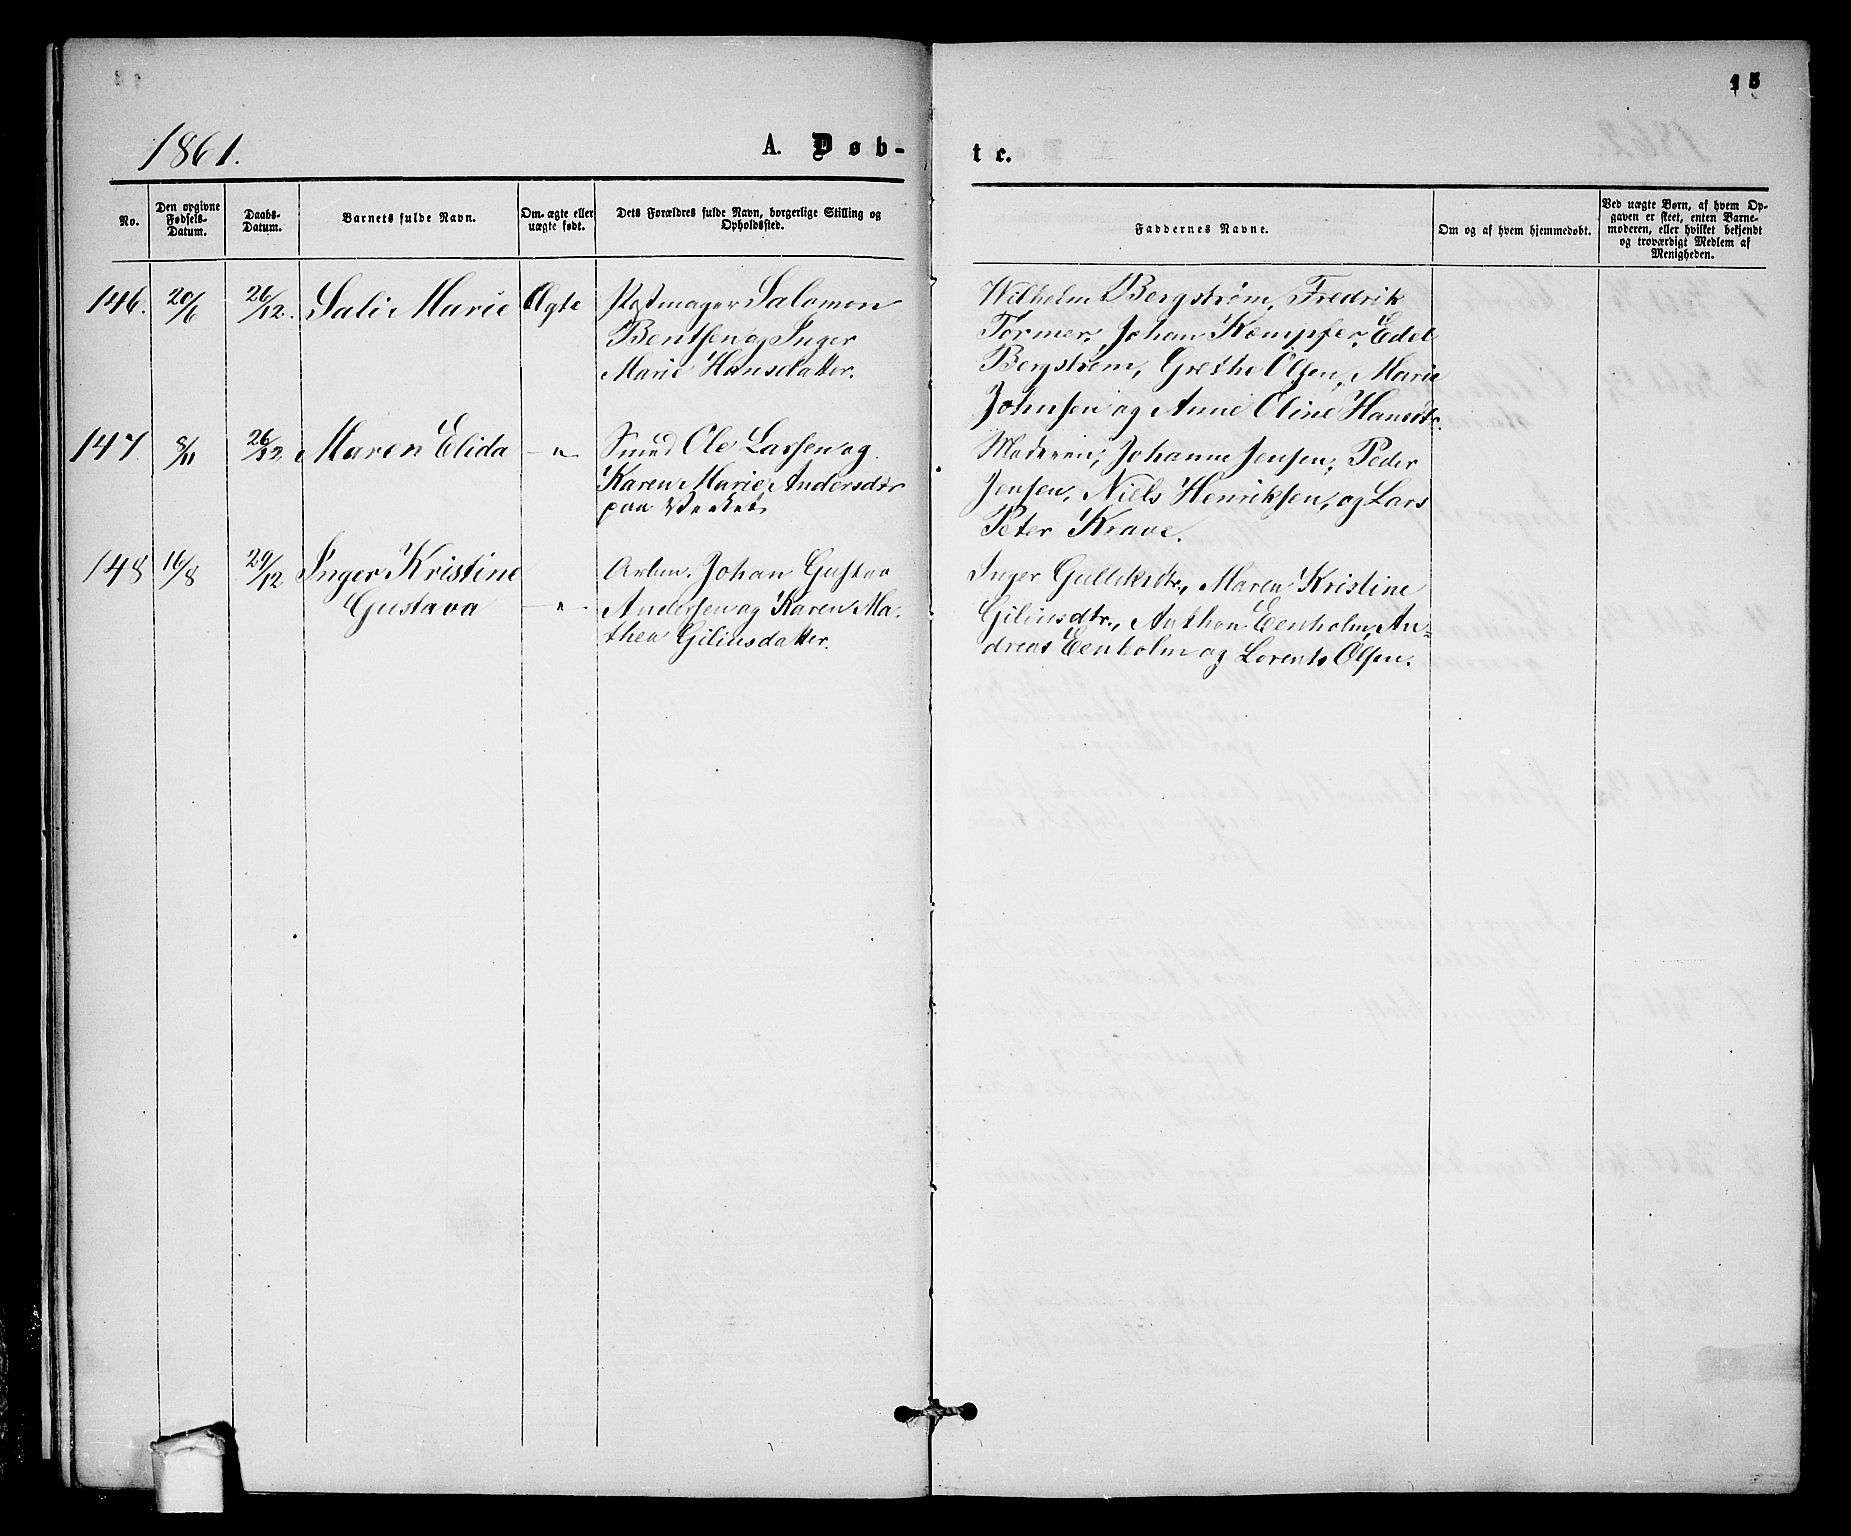 15
1861.
A. Døb-
te.
No.
Den opgivne
Fødsels-
Datum.
Daabs-
Datum.
Barnets fulde Navn.
Om ægte eller
uægte født.
Dets Forældres fulde Navn, borgerlige Stilling og
Opholdssted.
Faddernes Navne.
Om og af hvem hjemmedøbt.
Ved uægte Børn, af hvem Op-
gaven er skeet, enten Barne-
moderen, eller hvilket bekjendt
og troværdigt Medlem af
Menigheden.
146. 20/6 26/12. Sali Marie Ægte
Salomon
Bentsen og Inger
Marie Hansdatter.
Wilhelm Bergstrøm, Fredrik
Tørmer, Johan Kæmpfer, Edel
Bergstrøm, Grethe Olsen, Marie
Johnsen og Anne Oline Hansdtr.
147 8/11 26/12 Maren Elida —"—
Smed Ole Larsen og
Karen Marie Andersdtr
paa Værket.
Moderen, Johanne Jensen, Peder
Jensen, Niels Henriksen, og Lars
Peter Krave.
148 16/8 29/12 Inger Kristine
Gustava —"—
Arbm. Johan Gustav
Andersen og Karen Ma-
thea Giliusdatter.
Inger Gulliksdtr., Maren Kristine
Giliusdtr., Anthon Eenholm, An-
dreas Eenholm og Lorents Olsen.